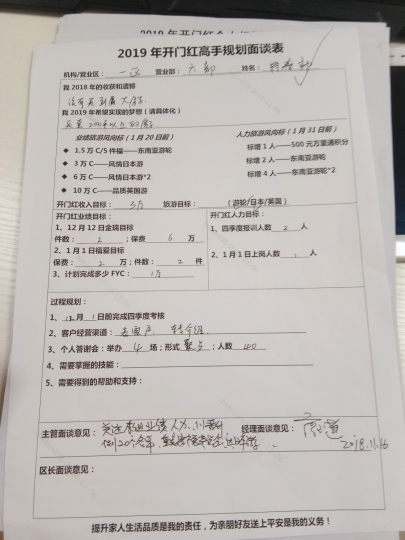 2019年开门红高手规划面谈表
机构/营业区：一区 营业部：六部 姓名：
我2018年的收获和遗憾
我2019年希望实现的梦想（请具体化）
业绩旅游风向标（1月20日前） 人力旅游风向标（1月31日前）
◆ 1.5万C/5件福——东南亚游轮 标增1人——500元万里通积分
◆ 3万C——风情日本游 标增2人——东南亚游轮
◆ 6万C——风情日本游*2 标增4人——东南亚游轮*2
◆ 10万C——品质英国游
开门红收入目标：3万 旅游目标：（游轮/日本/英国）
开门红业绩目标： 开门红人力目标：
1、12月12日金瑞目标 1、四季度报训人数2人
件数：2；保费6万
2、1月1日福爱目标 2、1月1日上岗人数1人
保费：2万；件数：2件
3、计划完成多少FYC：1万
过程规划：
1、12月1日前完成四季度考核
2、客户经营渠道：老客户 转介绍
3、个人答谢会：举办4场；形式聚点；人数40
4、需要掌握的技能：
5、需要得到的帮助和支持：
主管面谈意见： 经理面谈意见：
2018.11.16
区长面谈意见：
提升家人生活品质是我的责任，为亲朋好友送上平安是我的义务！